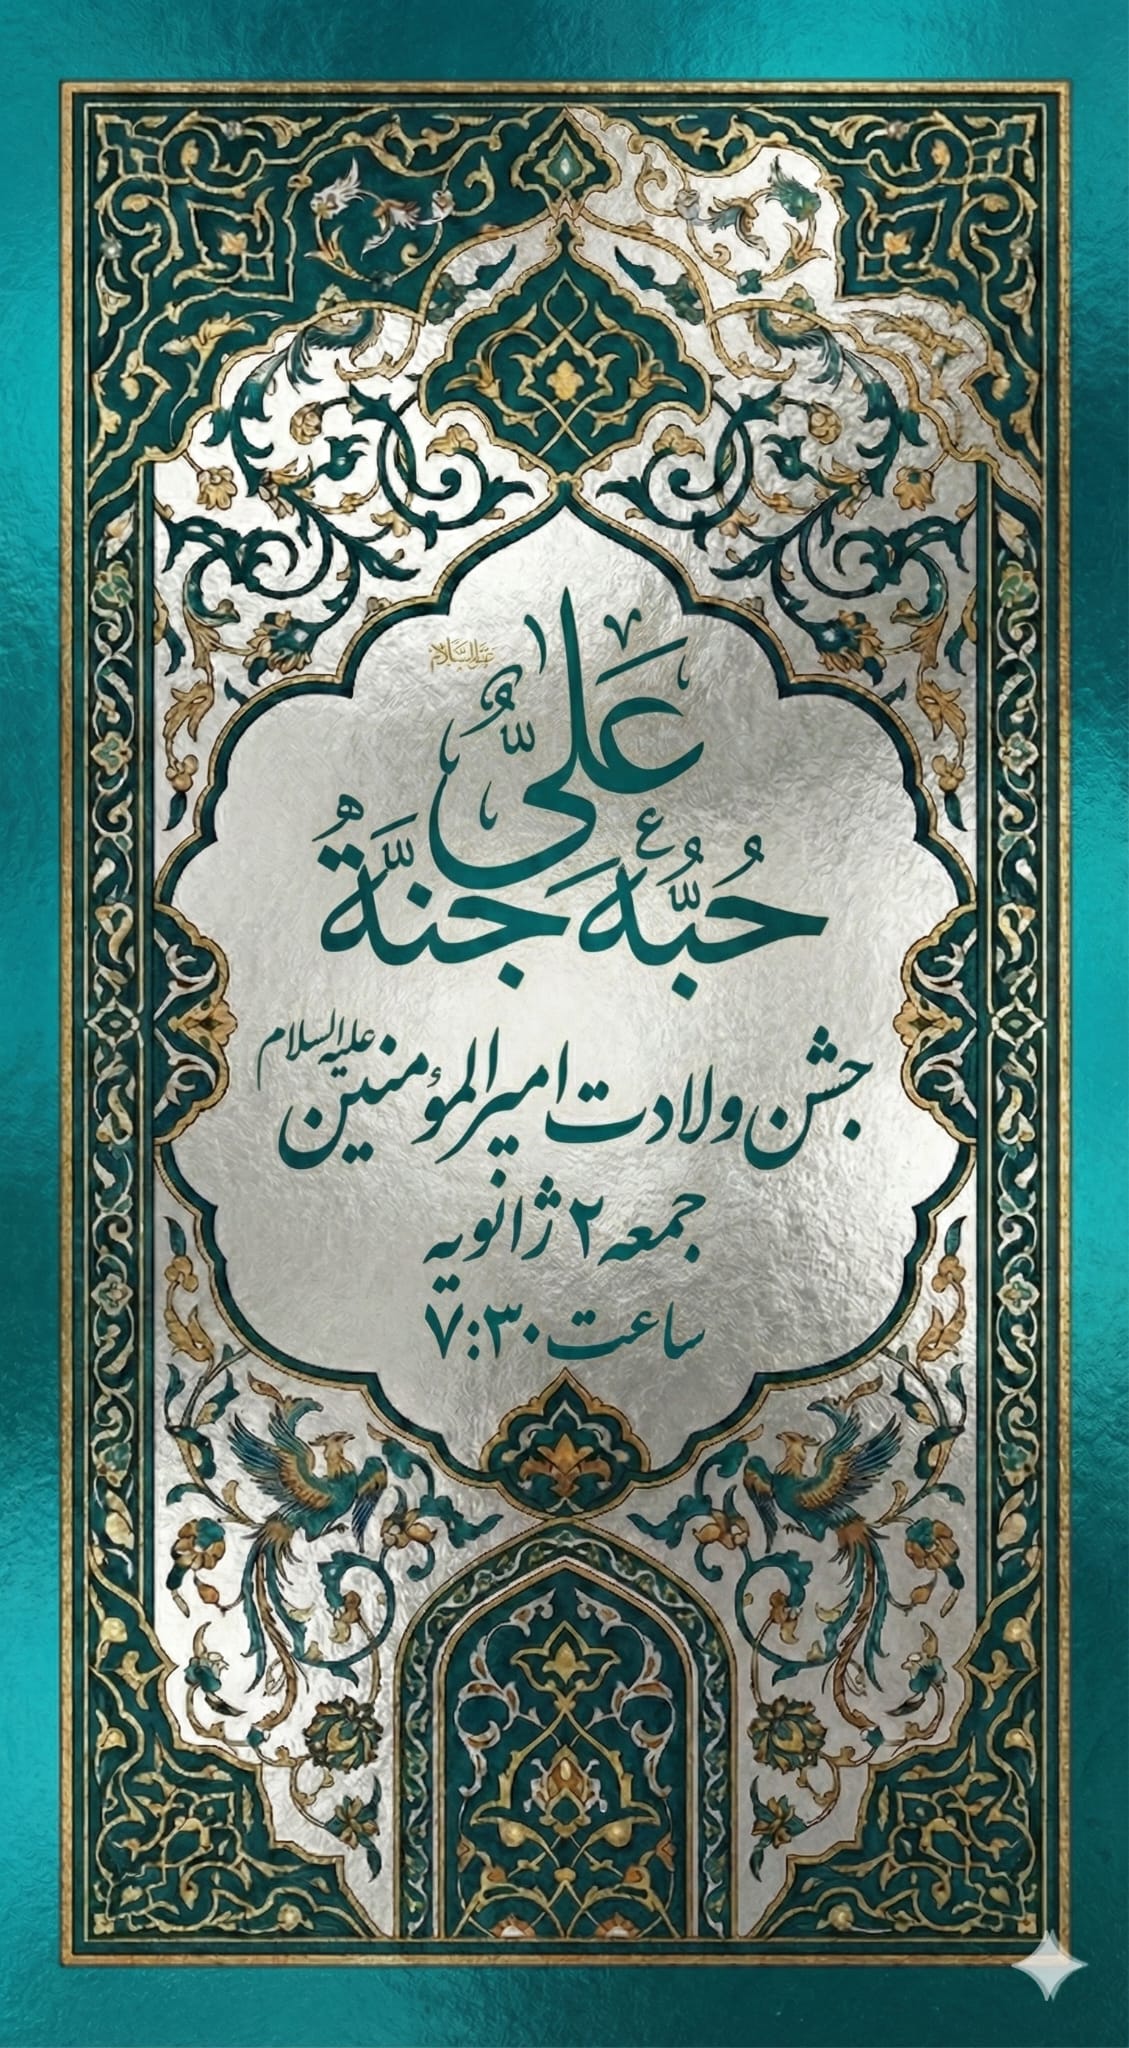 عَلِيٌّ
عَلَيْهِ السَّلَام
حُبُّهُ جَنَّةٌ
جشن ولادت امیرالمؤمنین علیه السلام
جمعه ۲ ژانویه
ساعت ۷:۳۰